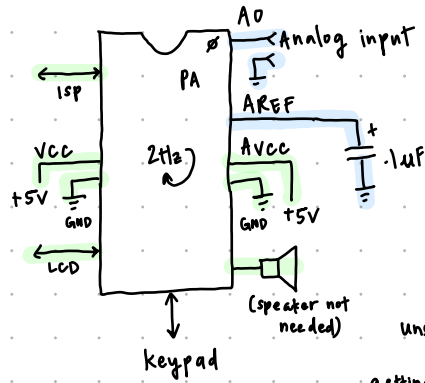 A0
Ø
Analog input
PA
ISP
AREF
+
.1uF
VCC
2Hz
AVCC
+5V
GND
GND
+5V
LCD
(speaker not
needed)
keypad
uns
getting